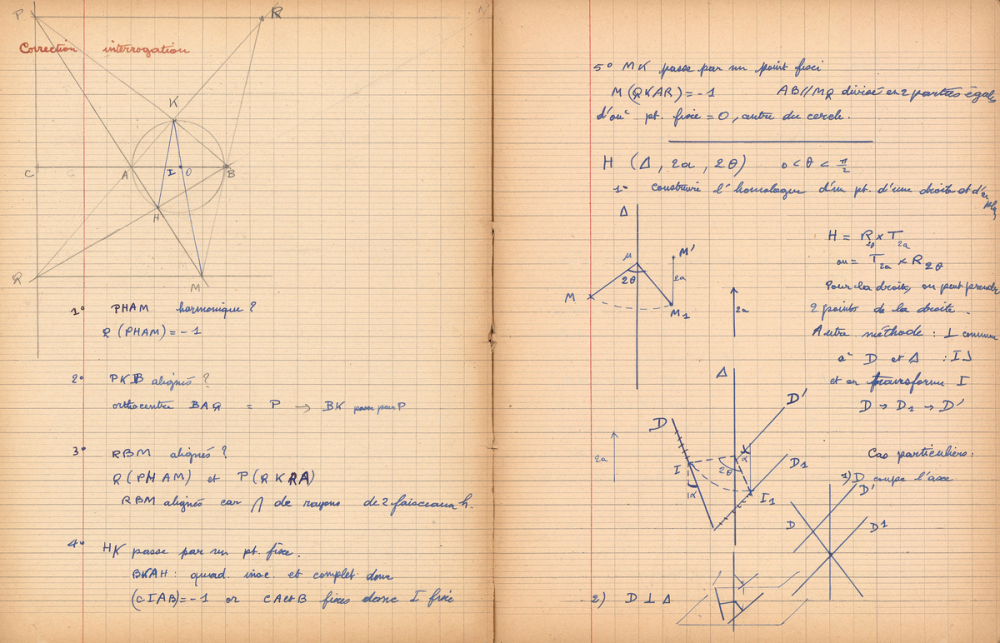 P
R
Correction interrogation
K
C
A
I
O
B
H
Q
M
1° PHAM harmonique ?
Q (PHAM) = -1
2° PKB alignés ?
orthocentre BAQ = P → BK passe par P
3° RBM alignés ?
Q (PHAM) et P (QKRA)
RBM alignés car ∩ de rayons de 2 faisceaux h.
4° HK passe par un pt. fixe.
BKAH : quad. insc. et complet donc
(CIAB) = -1 or CA et B fixes donc I fixe
5° MK passe par un point fixe
M (QKAR) = -1 AB // MQ divisé en 2 parties égales
d'où pt. fixe = O, centre du cercle.
H (Δ, 2a, 2θ) 0 < θ < π/2
1° construire l'homologue d'un pt. d'une droite et d'un plq
Δ
μ
2θ
M
M'
2a
M1
2a
H = R2θ × T2a
ou = T2a × R2θ
Pour la droite, on peut prendre
2 points de la droite.
Autre méthode : ⊥ commune
à D et Δ : IJ
et on transforme I
D → D1 → D'
Δ
D
D'
D1
I
2θ
α
α
I1
2a
Cas particuliers.
1) D coupe l'axe
D'
D
D1
2) D ⊥ Δ